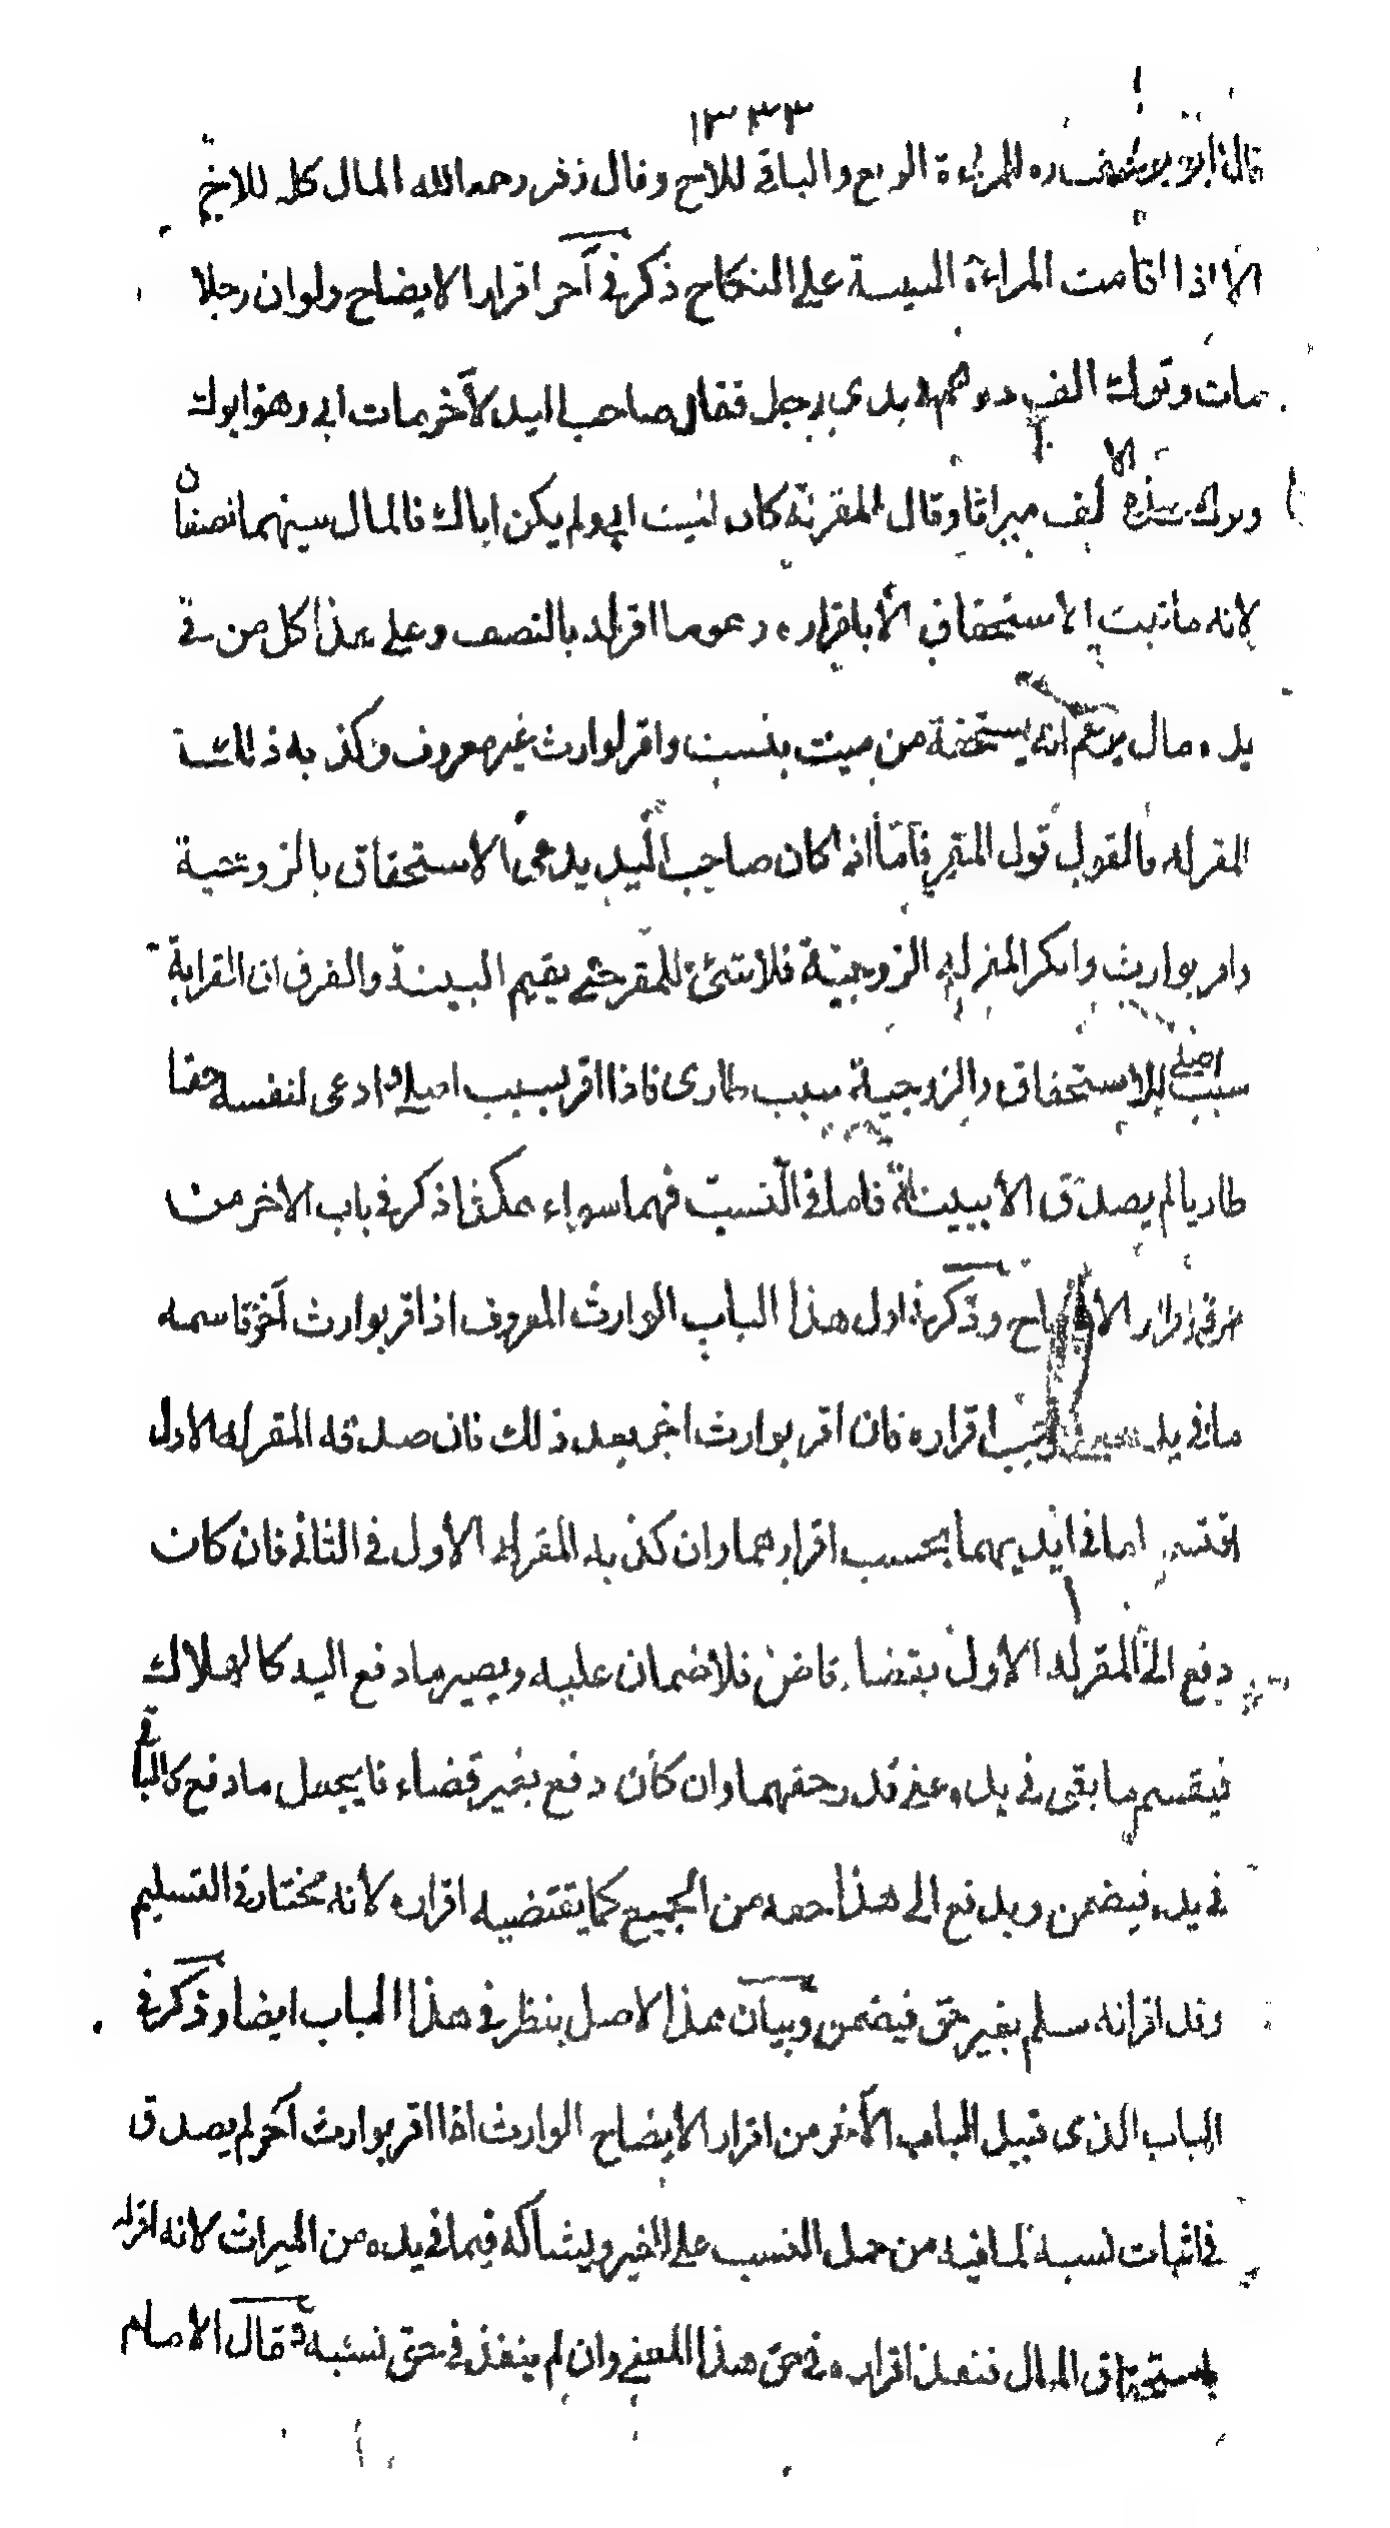 ١٣٣٣
قال ابو يوسف ره للمراءة الربع والباقي للاخ وقال زفر رحمه الله المال كله للاخ
الا اذا اقامت المراءة البينة على النكاح ذكر في آخر اقرار الايضاح ولو ان رجلا
مات وترك الف درهم في يدي رجل فقال صاحب اليد لآخر مات ابي وهو ابوك
وترك هذه الالف ميراثا وقال المقر به كان الميت ابي ولم يكن اباك فالمال بينهما نصفان
لانه ما ثبت الاستحقاق الا باقراره وهو ما اقر له بالنصف وعلى هذا كل من في
يده مال يزعم انه يستحقه من ميت بنسب واقر لوارث غير معروف وكذبه ذلك
المقر له فالقول قول المقر فاما اذا كان صاحب اليد يدعي الاستحقاق بالزوجية
واقر بوارث وانكر المقر له الزوجية فلا شئ للمقر حتى يقيم البينة والفرق ان القرابة
سبب اصلي للاستحقاق والزوجية سبب طارى فاذا اقر بسبب اصلي وادعى لنفسه حقا
طاريا لم يصدق الا ببينة فاما في النسب فهما سواء هكذا ذكر في باب الاخر من
اقرار الايضاح وذكر في اول هذا الباب الوارث المعروف اذا اقر بوارث آخر قاسمه
ما في يده على موجب اقراره فان اقر بوارث اخر بعد ذلك فان صدقه المقر له الاول
اقتسما ما في ايديهما بحسب اقرارهما وان كذبه المقر له الأول في الثاني فان كان
دفع الى المقر له الأول بقضاء قاض فلا ضمان عليه ويصير ما دفع اليه كالهلاك
فيقسم ما بقى في يده على قدر حقهما وان كان دفع بغير قضاء فا يجعل ما دفع كالباقي
في يده فيضمن ويدفع الى هذا حقه من الجميع كما يقتضيه اقراره لانه مختار في التسليم
وقد اقر انه سلم بغير حق فيضمن وبيان هذا الاصل ينظر في هذا الباب ايضا وذكر في
الباب الذى قبيل الباب الآخر من اقرار الايضاح الوارث اذا اقر بوارث آخر لم يصدق
في اثبات نسبه لما فيه من حمل النسب على الغير ويشاركه فيما في يده من الميراث لانه اقر له
باستحقاق المال فنفذ اقراره في حق هذا المعنى وان لم ينفذ في حق نسبه و قال الامام